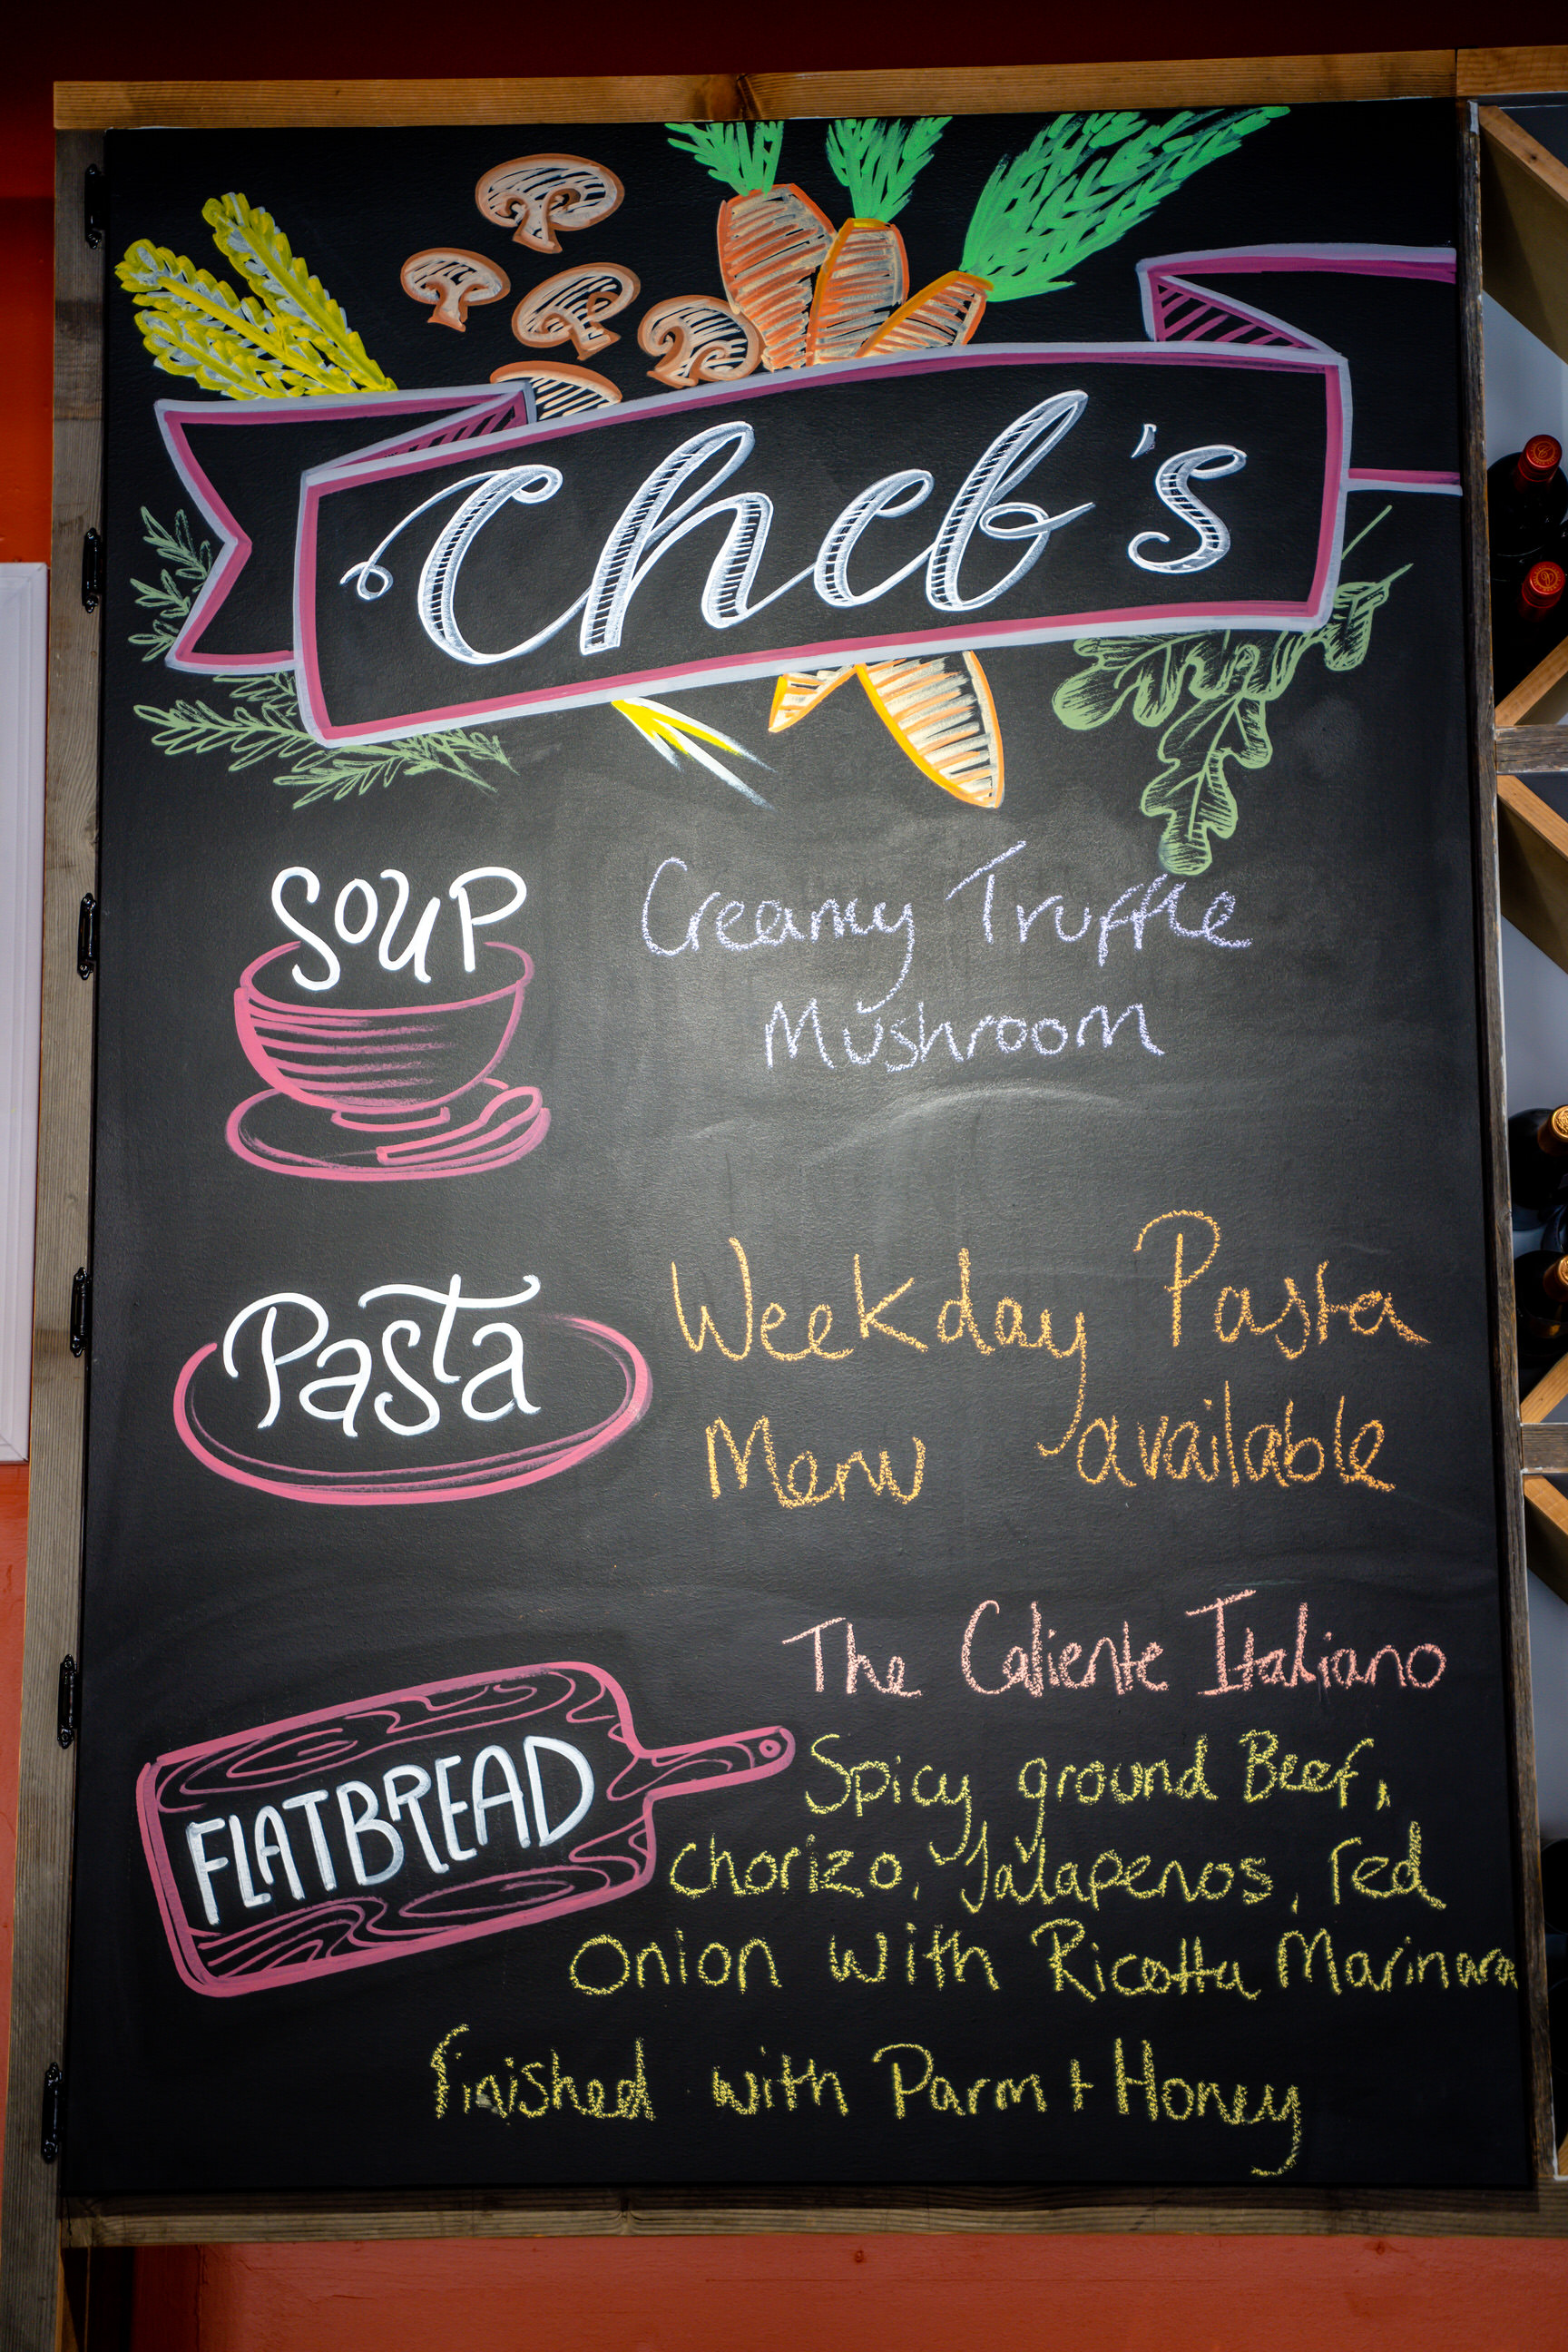 Chef's
SOUP
Creamy Truffle
Mushroom
Pasta
Weekday Pasta
Menu available
The Caliente Italiano
FLATBREAD
Spicy ground Beef,
chorizo, Jalapenos, red
Onion with Ricotta Marinara
Finished with Parm + Honey